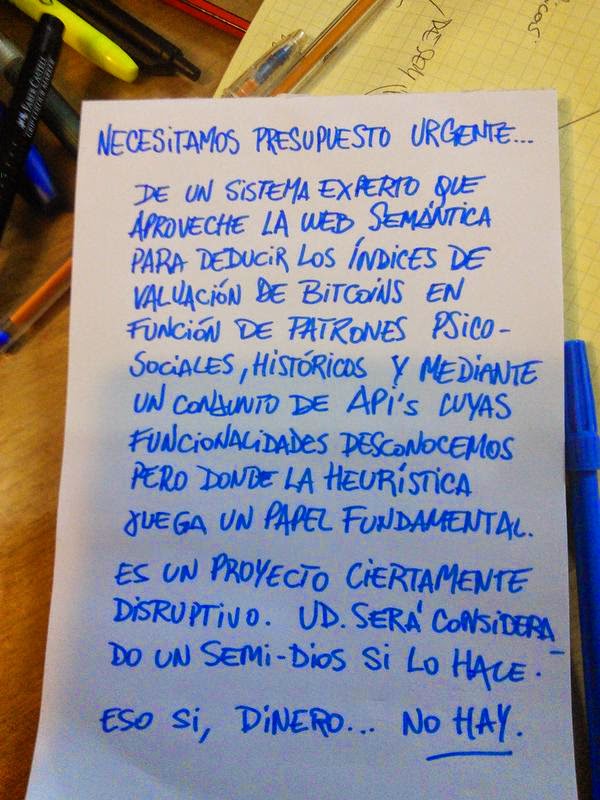 NECESITAMOS PRESUPUESTO URGENTE...
DE UN SISTEMA EXPERTO QUE
APROVECHE LA WEB SEMÁNTICA
PARA DEDUCIR LOS ÍNDICES DE
VALUACIÓN DE BITCOINS EN
FUNCIÓN DE PATRONES PSICO-
SOCIALES, HISTÓRICOS Y MEDIANTE
UN CONJUNTO DE API's CUYAS
FUNCIONALIDADES DESCONOCEMOS
PERO DONDE LA HEURÍSTICA
JUEGA UN PAPEL FUNDAMENTAL.
ES UN PROYECTO CIERTAMENTE
DISRUPTIVO. UD. SERÁ CONSIDERA-
DO UN SEMI-DIOS SI LO HACE.
ESO SI, DINERO... NO HAY.
FABER-CASTELL